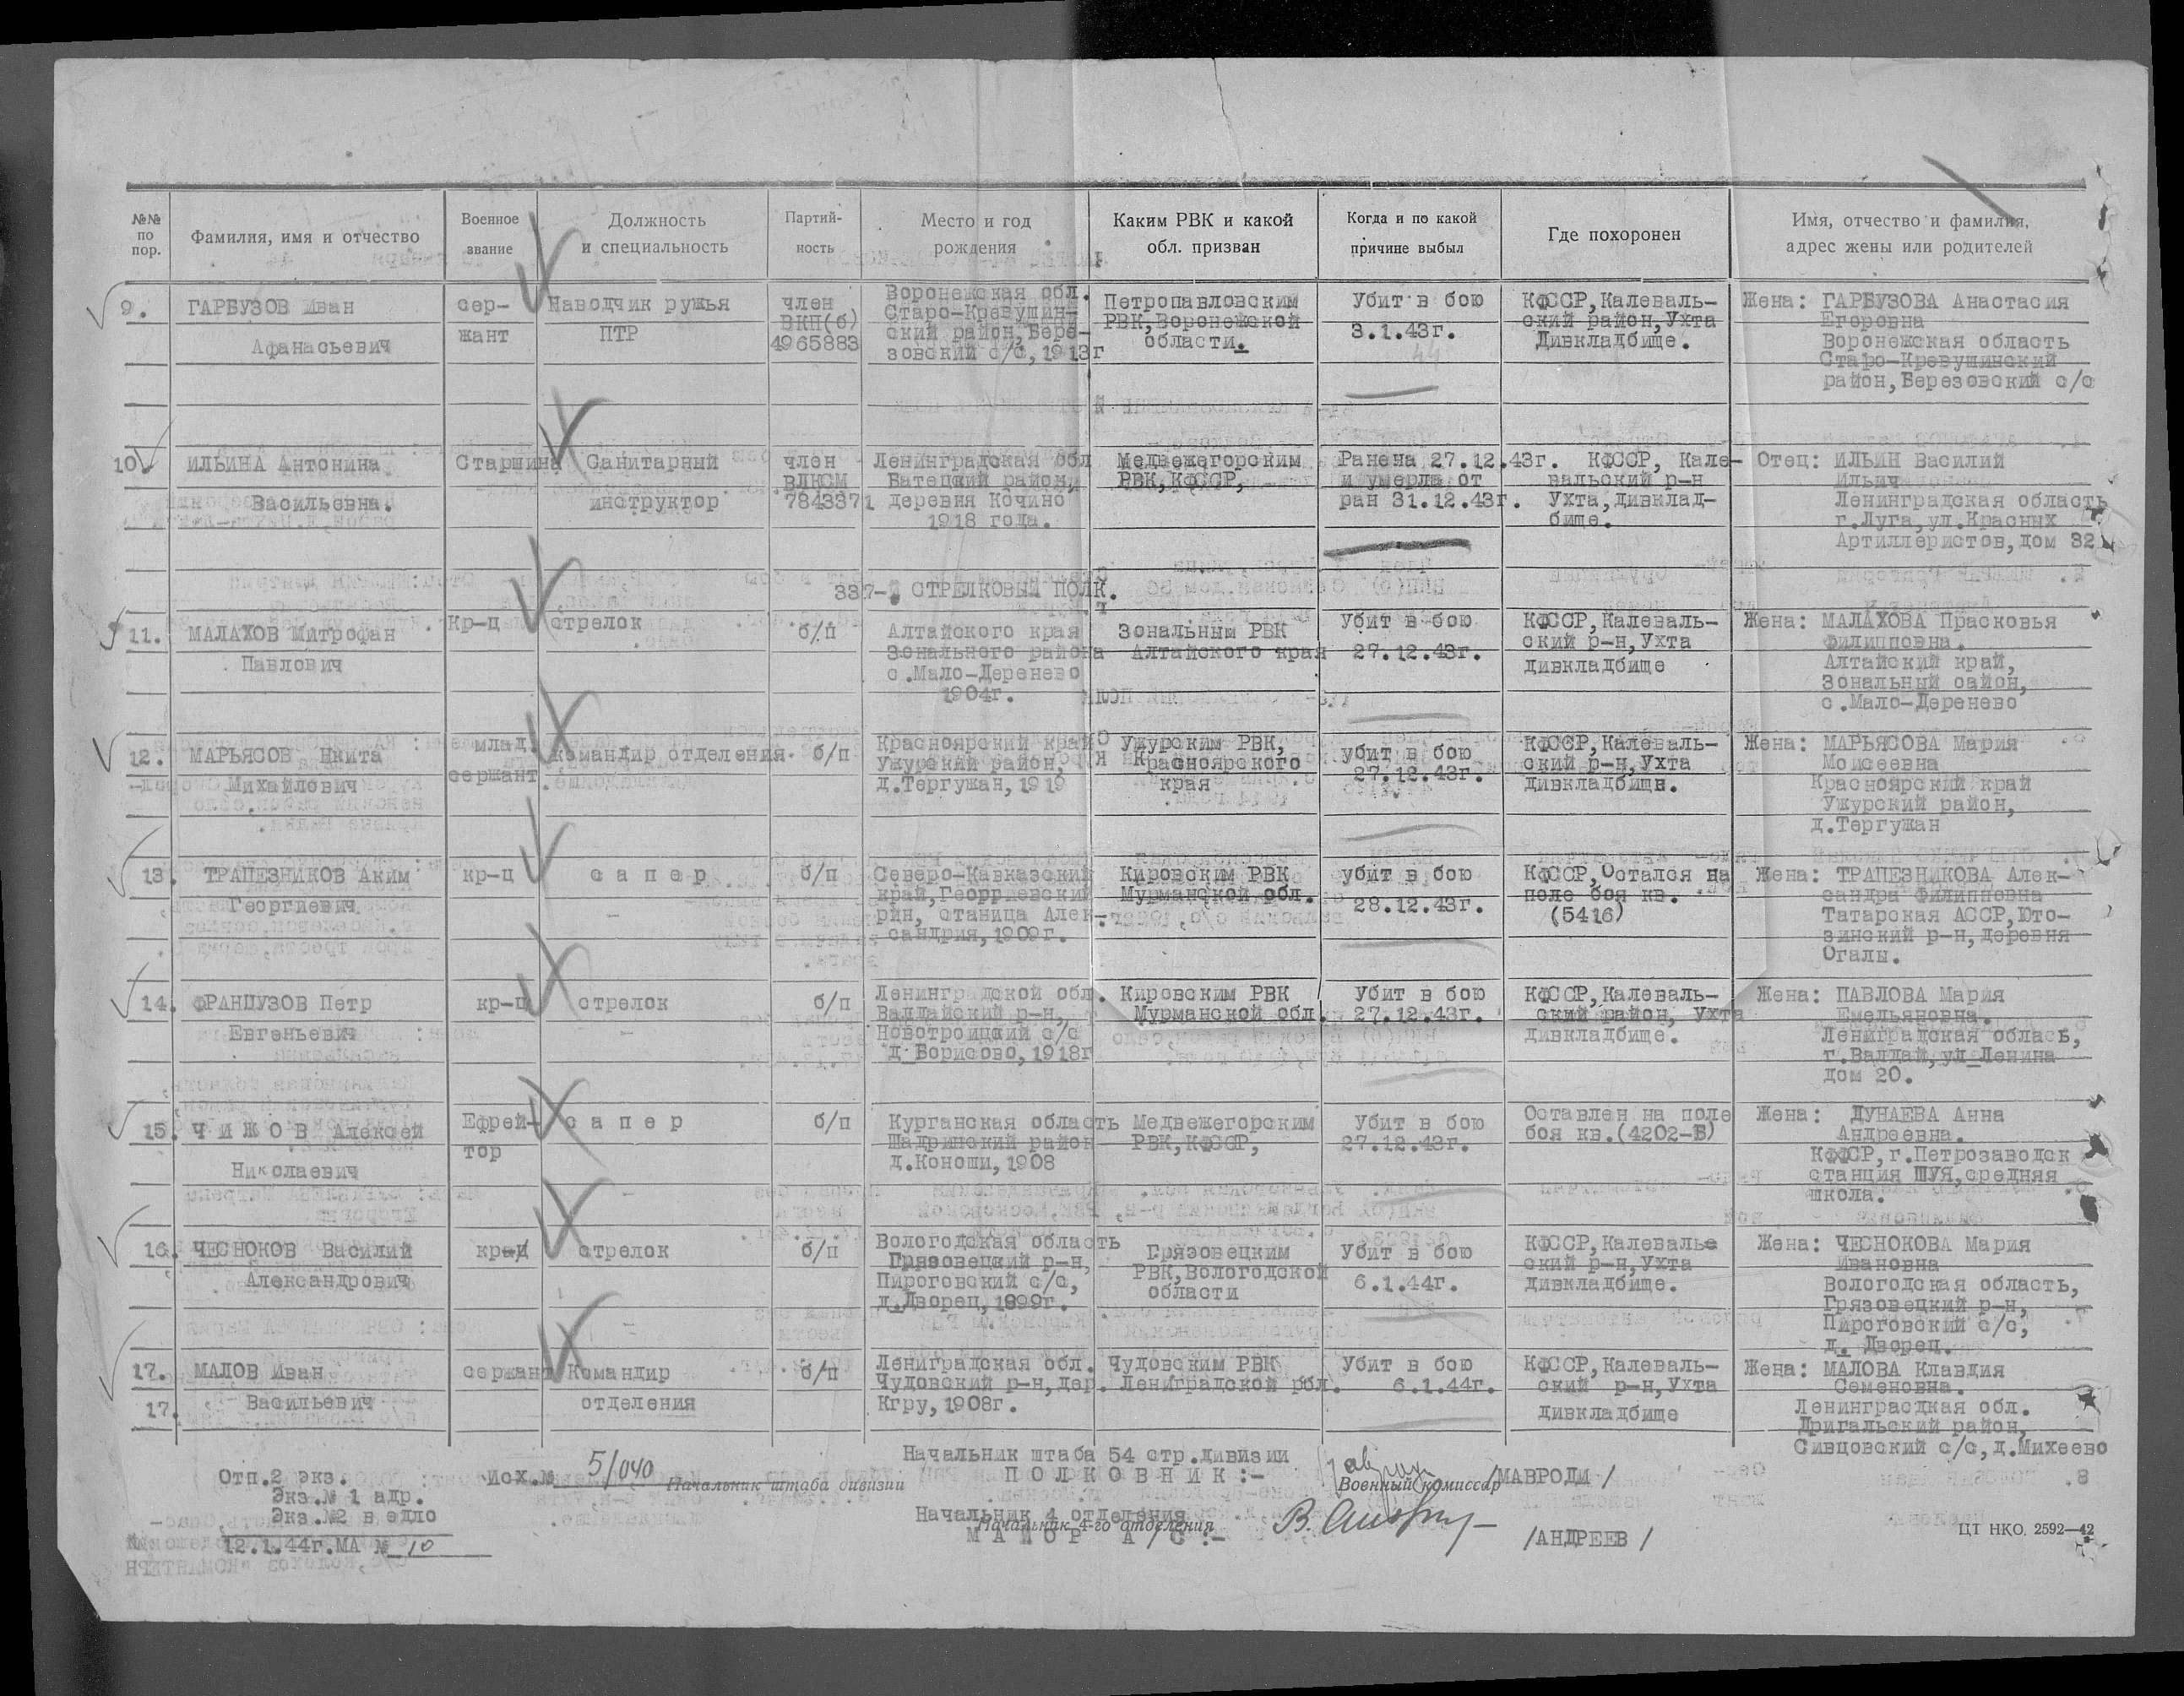 №№ по пор.
Фамилия, имя и отчество
Военное звание
Должность и специальность
Партий- ность
Место и год рождения
Каким РВК и какой обл. призван
Когда и по какой причине выбыл
Где похоронен
Имя, отчество и фамилия, адрес жены или родителей
9.
ГАРБУЗОВ Иван
Афанасьевич
сер-
жант
Наводчик ружья
ПТР
член
ВКП(б)
4965883
Воронежская обл.
Старо-Кревушин-
ский район, Бере-
зовский с/с, 1913г
Петропавловским
РВК, Воронежской
области.
Убит в бою
3.1.43г.
44
КФССР, Калеваль-
ский район, Ухта
Дивкладбище.
Жена: ГАРБУЗОВА Анастасия
Егоровна
Воронежская область
Старо-Кревушинский
район, Березовский с/с
10.
ИЛЬИНА Антонина
Васильевна.
Старшина
Санитарный
инструктор
член
ВЛКСМ
7843371
Ленинградская обл
Батецкий район,
деревня Кочино
1918 года.
Медвежегорским
РВК, КФССР,
Ранена 27.12.43г.
и умерла от
ран 31.12.43г.
КФССР, Кале-
вальский р-н
Ухта, дивклад-
бище.
Отец: ИЛЬИН Василий
Ильич
Ленинградская область
г.Луга, ул.Красных
Артиллеристов, дом 32
337-. СТРЕЛКОВЫЙ ПОЛК.
11.
МАЛАХОВ Митрофан
Павлович
Кр-ц
стрелок
б/п
Алтайского края
Зонального района
с.Мало-Деренево
1904г.
Зональным РВК
Алтайского края
Убит в бою
27.12.43г.
КФССР, Калеваль-
ский р-н, Ухта
дивкладбище
Жена: МАЛАХОВА Прасковья
Филипповна.
Алтайский край,
Зональный оайон,
с.Мало-Деренево
12.
МАРЬЯСОВ Никита
Михайлович
млад.
сержант
командир отделения
б/п
Красноярский край
Ужурский район,
д.Тергужан, 1919
Ужурским РВК,
Красноярского
края
убит в бою
27.12.43г.
КФССР, Калеваль-
ский р-н, Ухта
дивкладбище.
Жена: МАРЬЯСОВА Мария
Моисеевна
Красноярский край
Ужурский район,
д.Тергужан
13.
ТРАПЕЗНИКОВ Аким
Георгиевич
кр-ц
с а п е р
б/п
Северо-Кавказский
край, Георгиевский
р-н, станица Алек-
сандрия, 1909г.
Кировским РВК
Мурманской обл.
убит в бою
28.12.43г.
КФССР, Остался на
поле боя кв.
(5416)
Жена: ТРАПЕЗНИКОВА Алек-
сандра Филипповна
Татарская АССР, Юто-
зинский р-н, деревня
Огалы.
14.
ФРАНЦУЗОВ Петр
Евгеньевич
кр-ц
стрелок
б/п
Ленинградской обл.
Валдайский р-н,
Новотроицкий с/с
д Борисово, 1918г
Кировским РВК
Мурманской обл.
Убит в бою
27.12.43г.
КФССР, Калеваль-
ский район, Ухта
дивкладбище.
Жена: ПАВЛОВА Мария
Емельяновна.
Ленинградская область,
г.Валдай, ул Ленина
дом 20.
15.
Ч И Ж О В Алексей
Николаевич
Ефрей-
тор
с а п е р
б/п
Курганская область
Шадринский район
д.Коноши, 1908
Медвежегорским
РВК, КФССР,
Убит в бою
27.12.43г.
Оставлен на поле
боя кв.(4202-Б)
Жена: ДУНАЕВА Анна
Андреевна.
КФССР, г.Петрозаводск
станция ШУЯ, средняя
школа.
16.
ЧЕСНОКОВ Василий
Александрович
кр-ц
стрелок
б/п
Вологодская область
Грязовецкий р-н,
Пироговский с/с,
д.Дворец, 1899г.
Грязовецким
РВК, Вологодской
области
Убит в бою
6.1.44г.
КФССР, Калевалье
ский р-н, Ухта
дивкладбище.
Жена: ЧЕСНОКОВА Мария
Ивановна
Вологодская область,
Грязовецкий р-н,
Пироговский с/с,
д. Дворец.
17.
МАЛОВ Иван
Васильевич
17.
сержант
Командир
отделения
б/п
Ленинградская обл.
Чудовский р-н, дер.
Кгру, 1908г.
Чудовским РВК
Ленинградской обл.
Убит в бою
6.1.44г.
КФССР, Калеваль-
ский р-н, Ухта
дивкладбище
Жена: МАЛОВА Клавдия
Семеновна.
Ленинграсдкая обл.
Дригальский район,
Сивцовский с/с, д.Михеево
Отп.2 экз.
Экз.№ 1 адр.
Экз.№2 в едло
12.1.44г.МА № 10
Исх.№ 5/040
Начальник штаба дивизии
Начальник штаба 54 стр.дивизии
П О Л К О В Н И К :-
Военный комиссар
/МАВРОДИ/
Начальник 4 отделения
Начальник 4-го отделения
М А Й О Р А/С :-
/АНДРЕЕВ/
ЦТ НКО. 2592—42